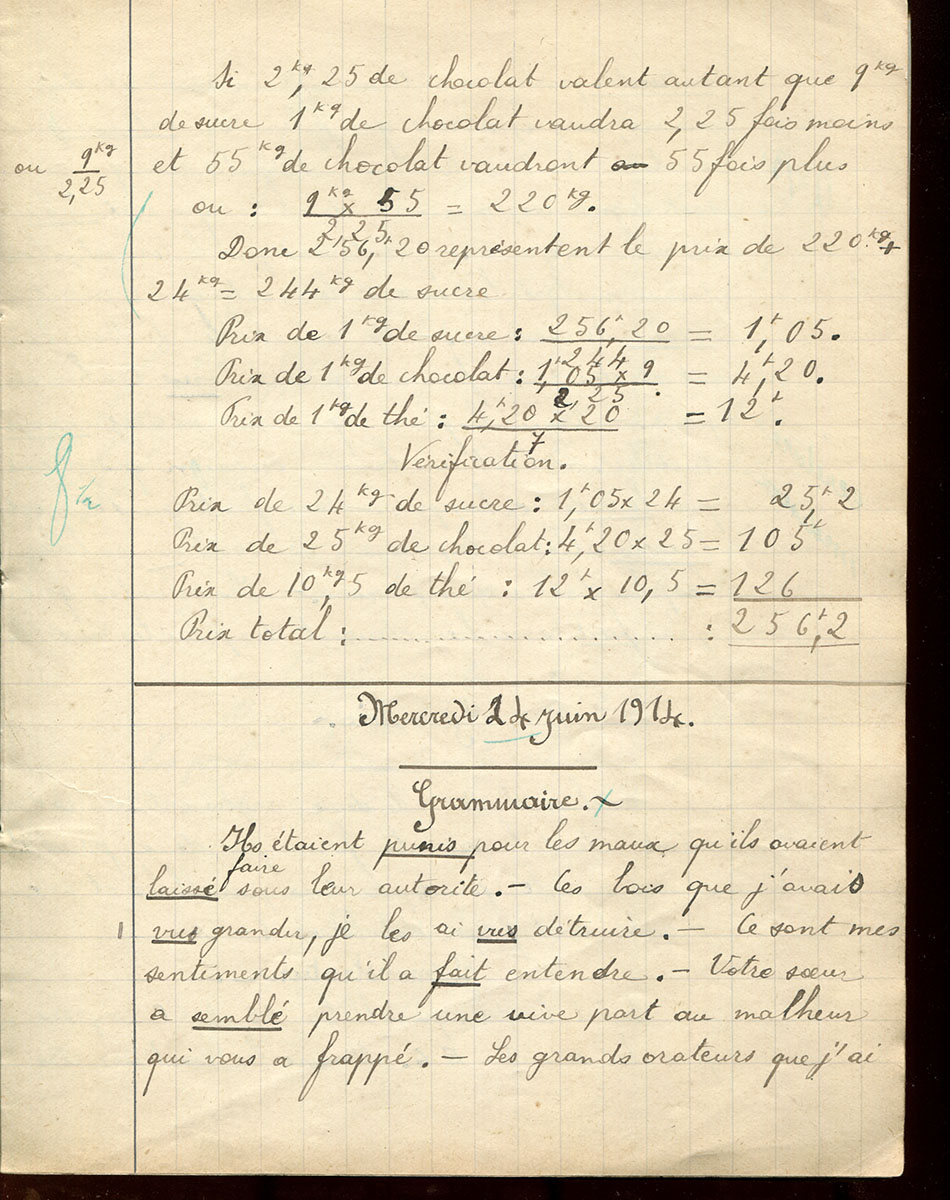 Si 2 kg, 25 de chocolat valent autant que 9 kg
de sucre 1 kg de chocolat vaudra 2,25 fois moins
ou 9 kg / 2,25
et 55 kg de chocolat vaudront 55 fois plus
ou : 9 kg x 55 / 2,25 = 220 kg.
Donc 256f,20 représentent le prix de 220 kg +
24 kg = 244 kg de sucre
Prix de 1 kg de sucre : 256f,20 / 244 = 1f,05.
Prix de 1 kg de chocolat : 1f,05 x 9 / 2,25 = 4f,20.
Prix de 1 kg de thé : 4f,20 x 20 / 7 = 12f.
Vérification.
Prix de 24 kg de sucre : 1f,05 x 24 = 25f,2
Prix de 25 kg de chocolat : 4f,20 x 25 = 105f
Prix de 10 kg,5 de thé : 12f x 10,5 = 126
Prix total : .......................... : 256f,2
Mercredi 24 Juin 1914.
Grammaire.
Ils étaient punis pour les maux qu'ils avaient
laissé faire sous leur autorité. — Ces bois que j'avais
vus grandir, je les ai vus détruire. — Ce sont mes
sentiments qu'il a fait entendre. — Votre sœur
a semblé prendre une vive part au malheur
qui vous a frappé. — Les grands orateurs que j'ai